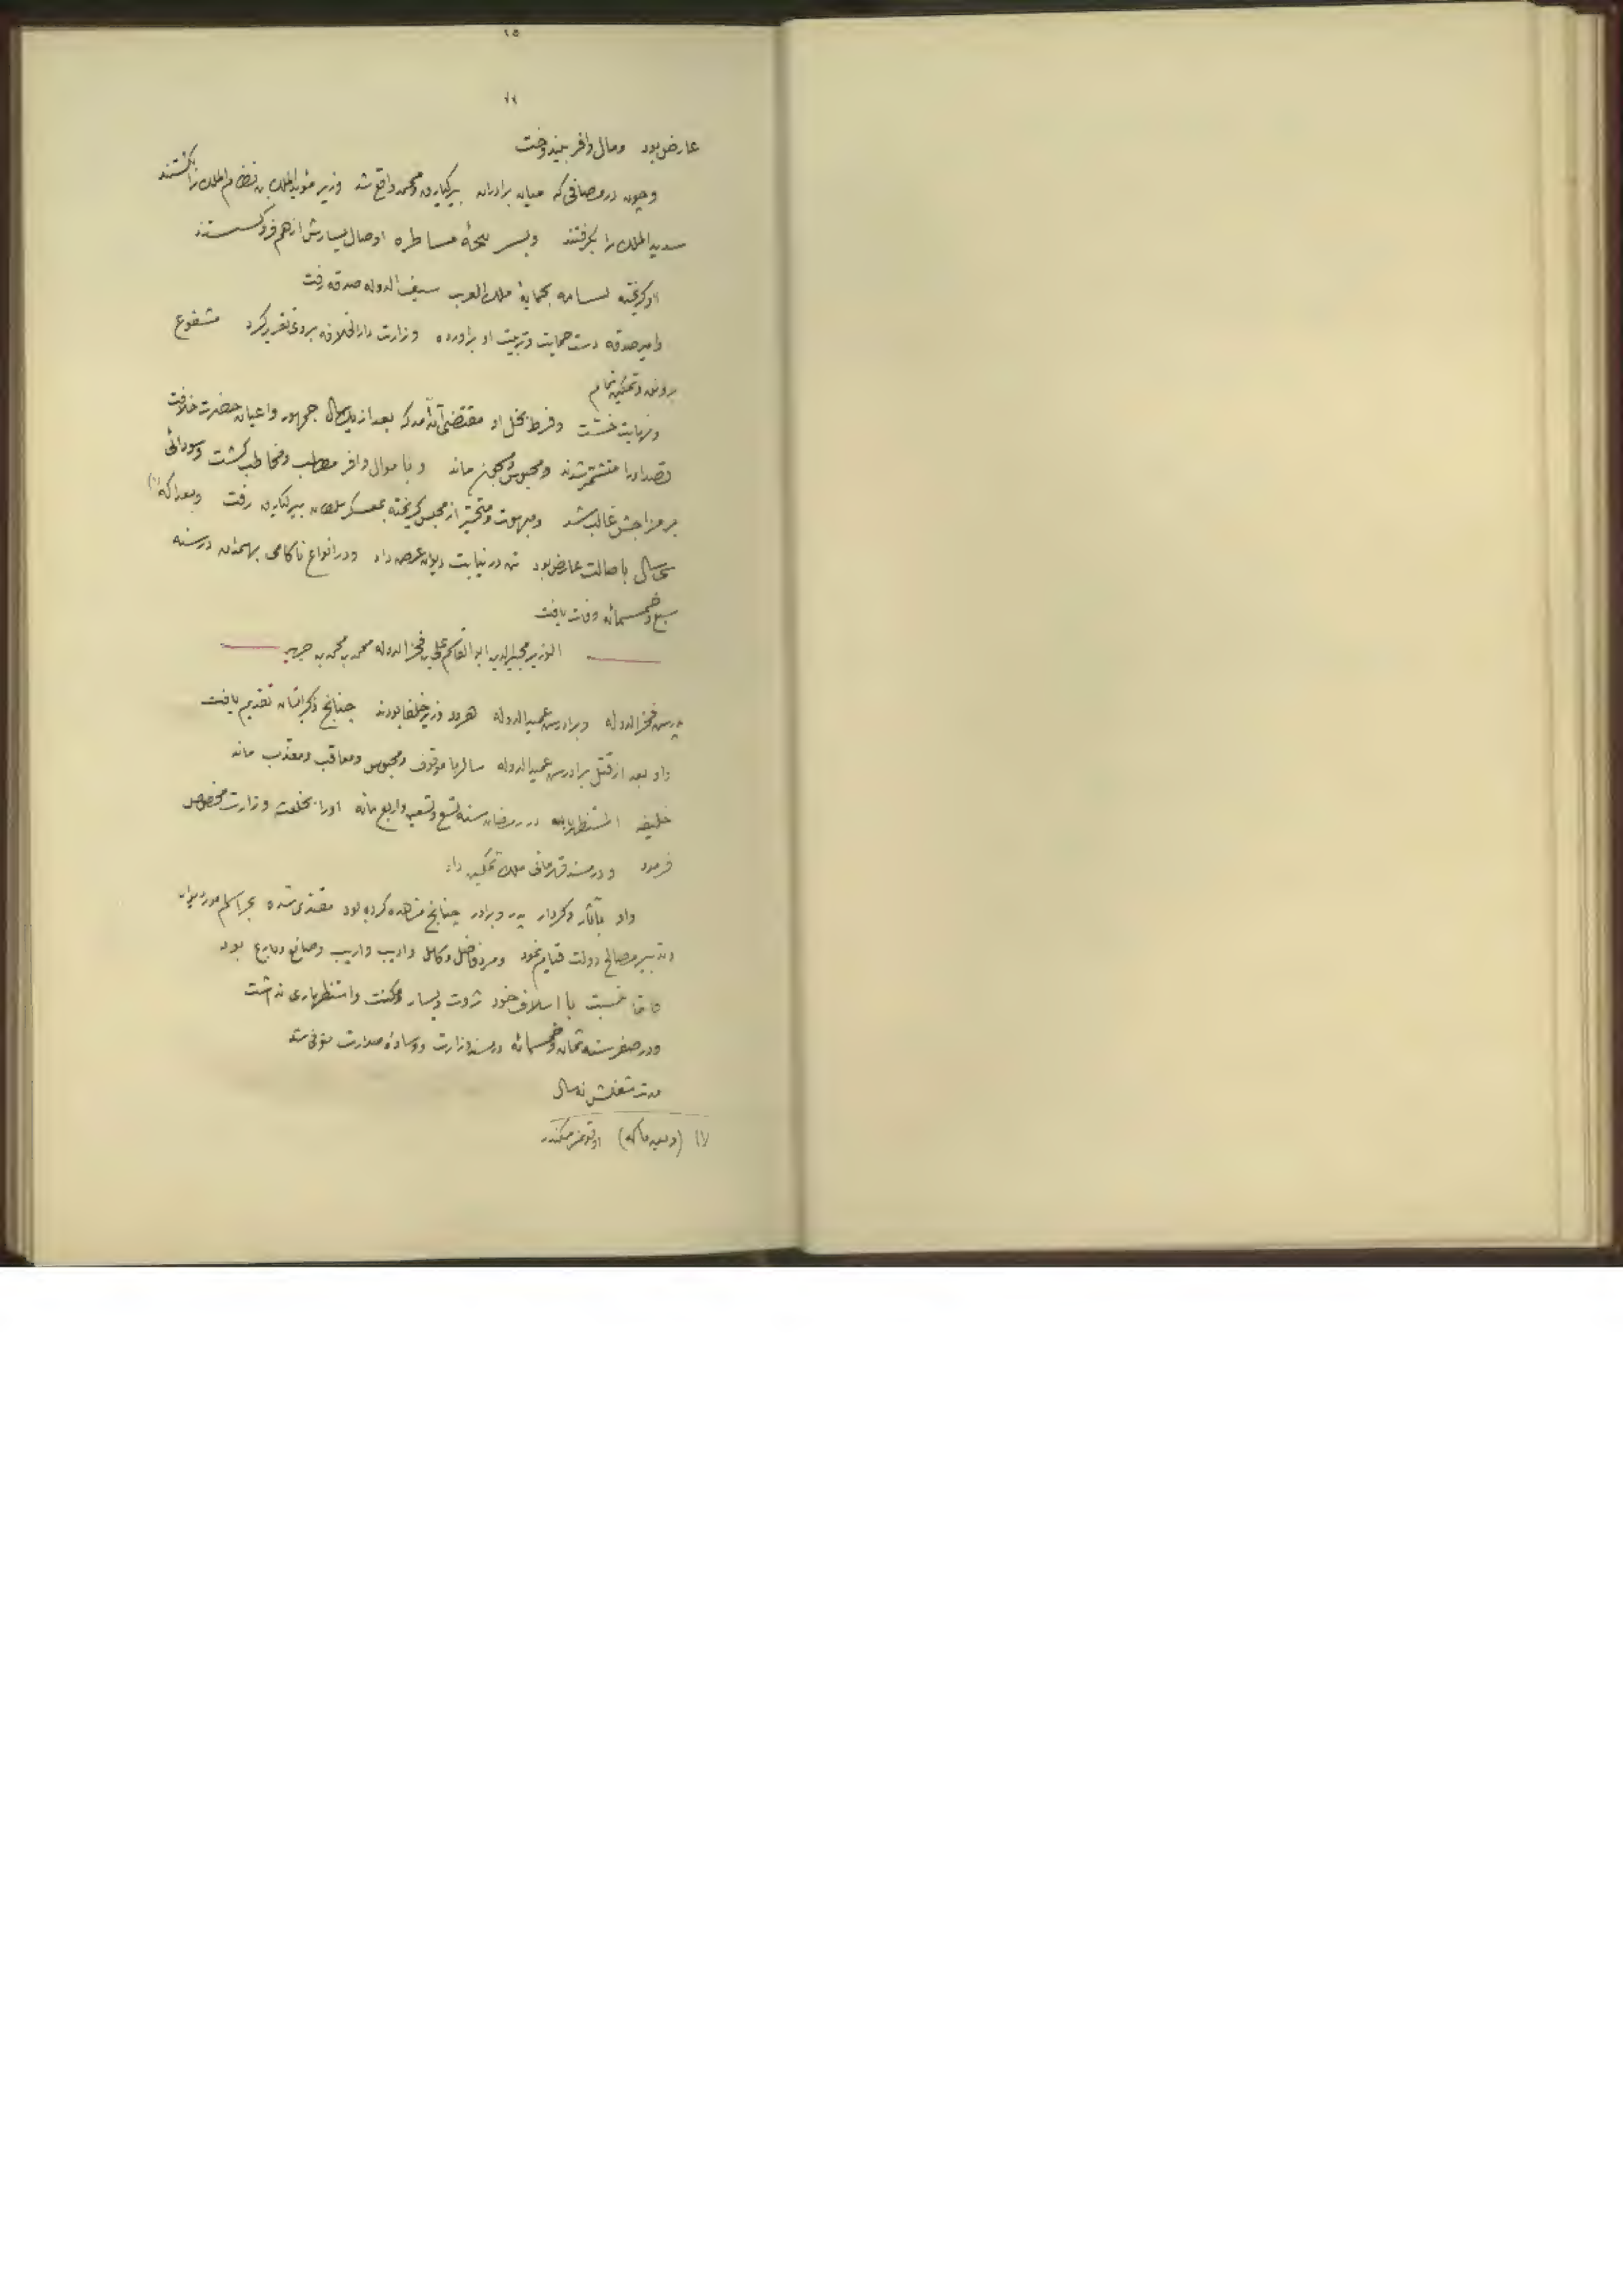 ١٥
٧٢
عارض بود ومال وافر بیندوخت
وچون در مصافی که میان برادران برکیارق ومحمد واقع شد وزیر مؤید الملک بن نظام الملک را بکشتند
سدید الملک را بگرفتند وبسر مساطره اوصال یسارش از هم فرو گسستند
او گریخته بحمایة ملک العرب سیف الدوله صدقه رفت
وامیر صدقه دست حمایت وتربیت او برآورده وزارت دار الخلافه بروی تقریر کرد مشفوع
برونق وتمکین تمام
ونهایت خست وفرط بخل او مقتضی آن آمد که بعد از یکسال جمهور واعیان حضرت خلافت
قصد او را متشمر شدند ومحبوس ماند وباموال وافر مطالب ومخاطب گشت وسودائی
بر مزاجش غالب شد ومبهوت ومتحیر از محبس گریخته بمعسکر سلطان برکیارق رفت وبعدا که (١)
سی سال باصالت عارض بود تن در نیابت دیوان عرض داد ودر انواع ناکامی بهمدان در سنه
سبع وخمسمائه وفات یافت
الوزیر مجیر الدین ابو القاسم علی بن فخر الدوله محمد بن محمد بن جهیر
پدرش فخر الدوله وبرادرش عمید الدوله هردو وزیر خلفا بودند چنانچ ذکر ایشان تقدیم یافت
واو بعد از قتل برادرش عمید الدوله سالها موقوف ومحبوس ومعاقب ومعذب ماند
خلیفه المستظهر بالله در رمضان سنه تسع وتسعین واربع مائه او را بخلعت وزارت مخصوص
فرمود ودر مسند قهرمانی ملک تمکین داد
واو بآثار وکردار پدر وبرادر چنانچ مشاهده کرده بود مقتدی شده بمراسم امور دیوان
وتدبیر مصالح دولت قیام نمود ومرد فاضل وکامل وادیب واریب وصانع وبارع بود
نسبت با اسلاف خود ثروت ویسار ومکنت واستظهاری نداشت
ودر صفر سنه ثمان وخمسمائه در مسند وزارت ووساده صدارت متوفی شد
مدت شغلش نه سال
(١) (وبعد ما که)